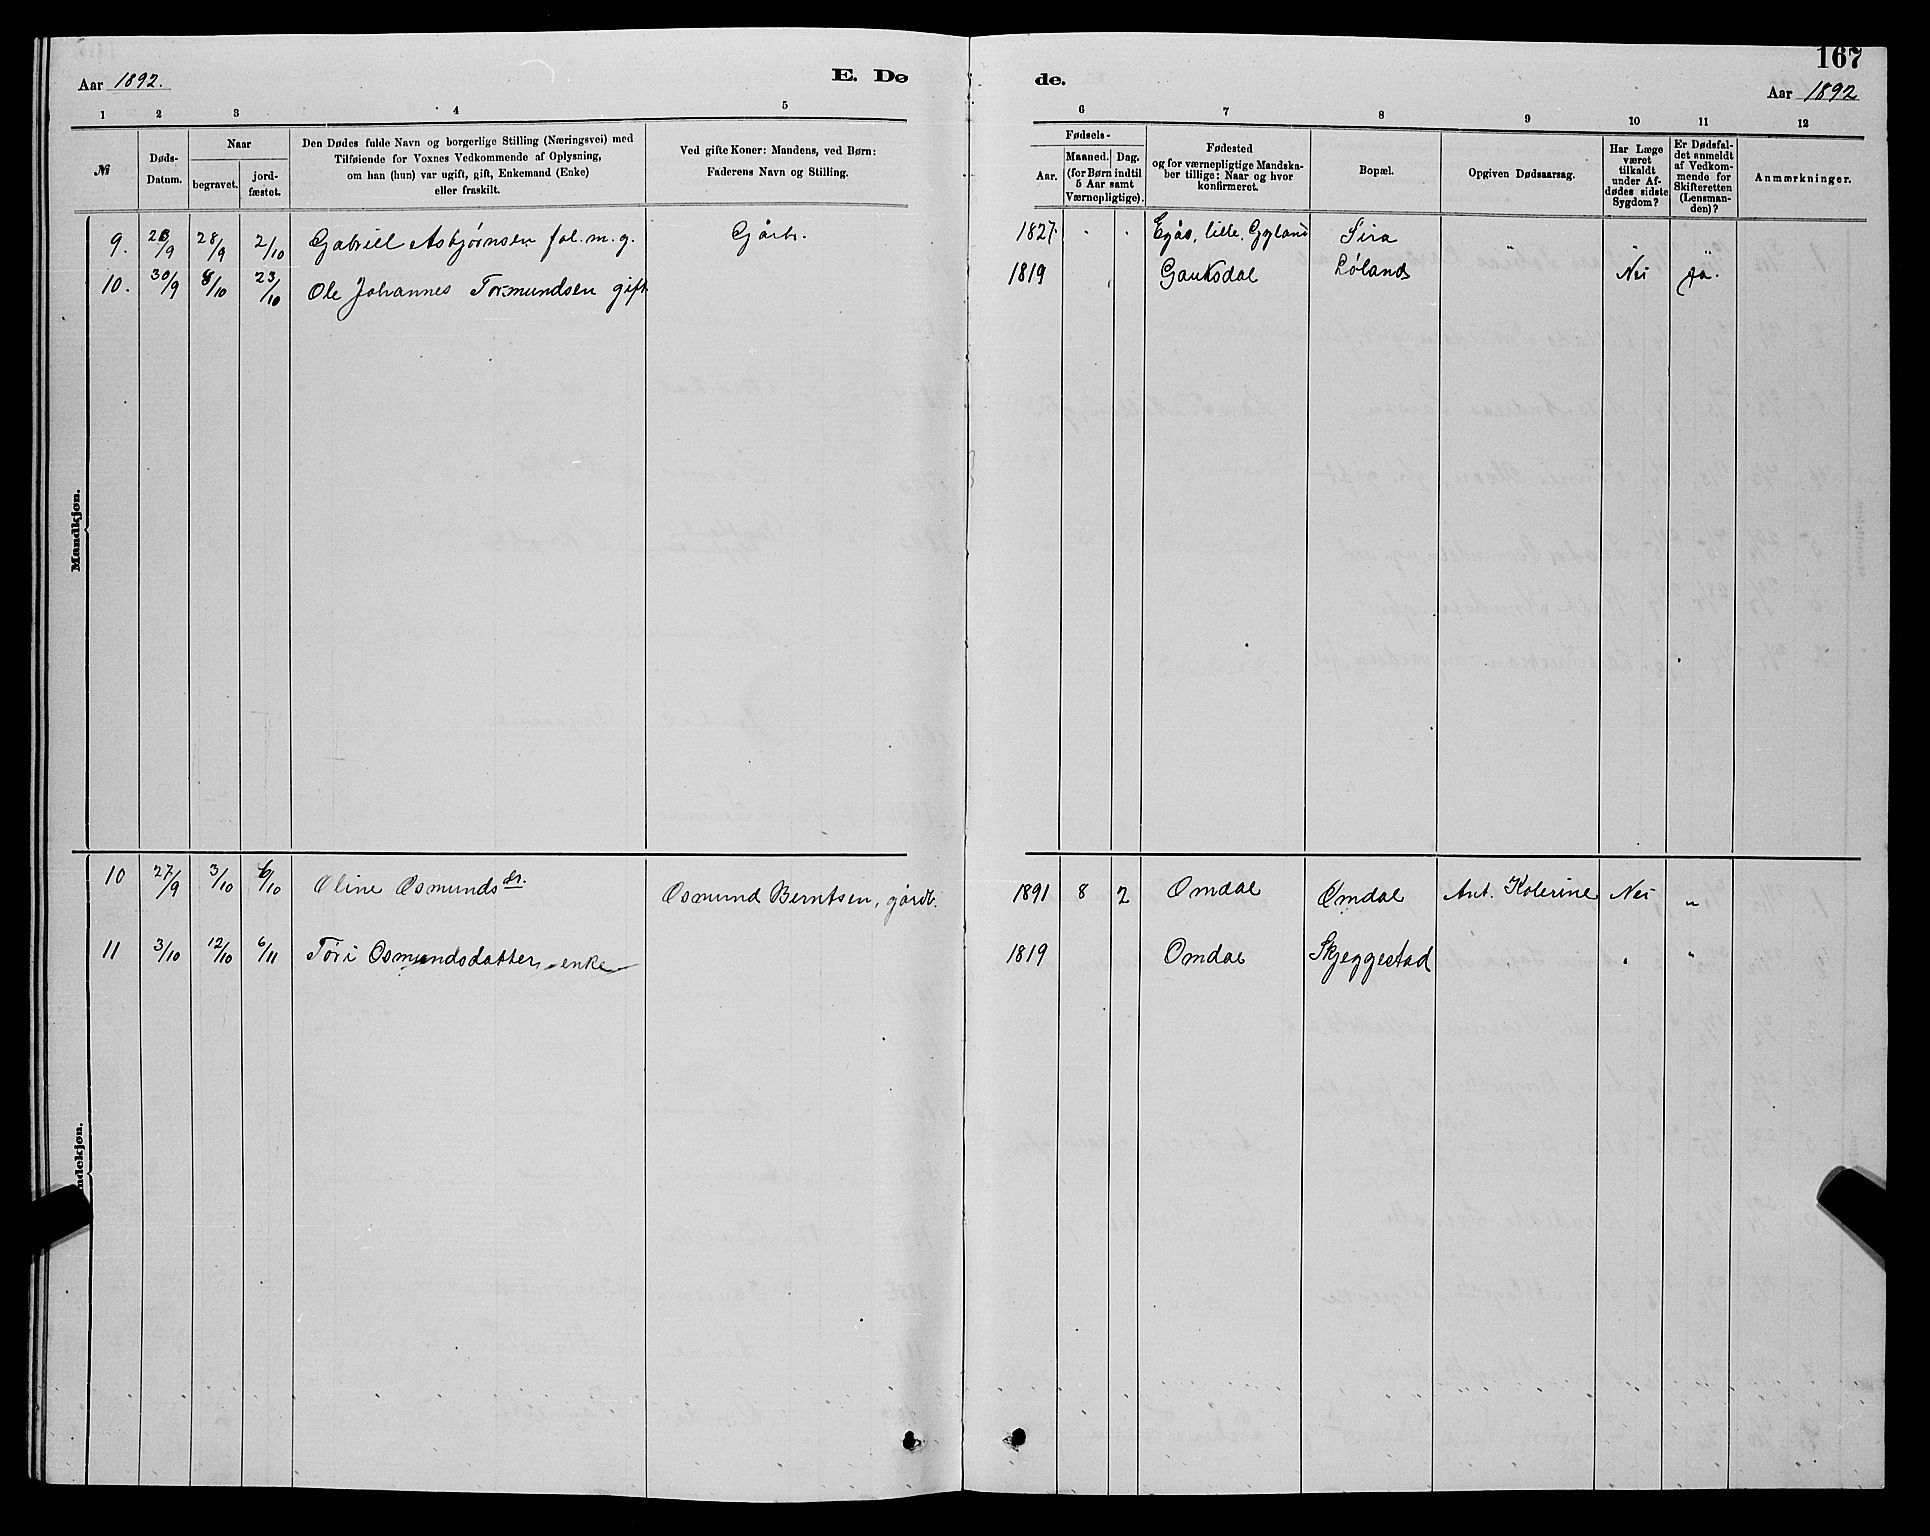 167
Aar 1892.
E. Dø
de.
Aar 1892
1 2 3 4 5 6 7 8 9 10 11 12
№
Døds-
Datum.
Naar
begravet.
jord-
fæstet.
Den Dødes fulde Navn og borgerlige Stilling (Næringsvei) med
Tilføiende for Voxnes Vedkommende af Oplysning,
om han (hun) var ugift, gift, Enkemand (Enke)
eller fraskilt.
Ved gifte Koner: Mandens, ved Børn:
Faderens Navn og Stilling.
Fødsels-
Aar.
Maaned.
Dag.
(for Børn indtil
5 Aar samt
Værnepligtige).
Fødested
og for værnepligtige Mandska-
ber tillige: Naar og hvor
konfirmeret.
Bopæl.
Opgiven Dødsaarsag.
Har Læge
været
tilkaldt
under Af-
dødes sidste
Sygdom?
Er Dødsfal-
det anmeldt
af Vedkom-
mende for
Skifteretten
(Lensman-
den)?
Anmærkninger.
Mandkjøn.
9. 28/9 2/10 Gabriel Asbjørnsen m. g. Gårbr. 1827 Lille, Gyland Sira "
10. 30/9 8/10 23/10 Ole Johannes Tormundsen gift 1819 Gauksdal Løland Nei Ja.
ndekjøn.
10 27/9 3/10 6/10 Oline Osmundsdr. Osmund Berntsen, gårdb. 1891 8 2 Omdal Omdal Ant. Kolerine Nei "
11 3/10 12/10 6/11 Tøri Osmundsdatter, enke 1819 Omdal Skjeggestad " "